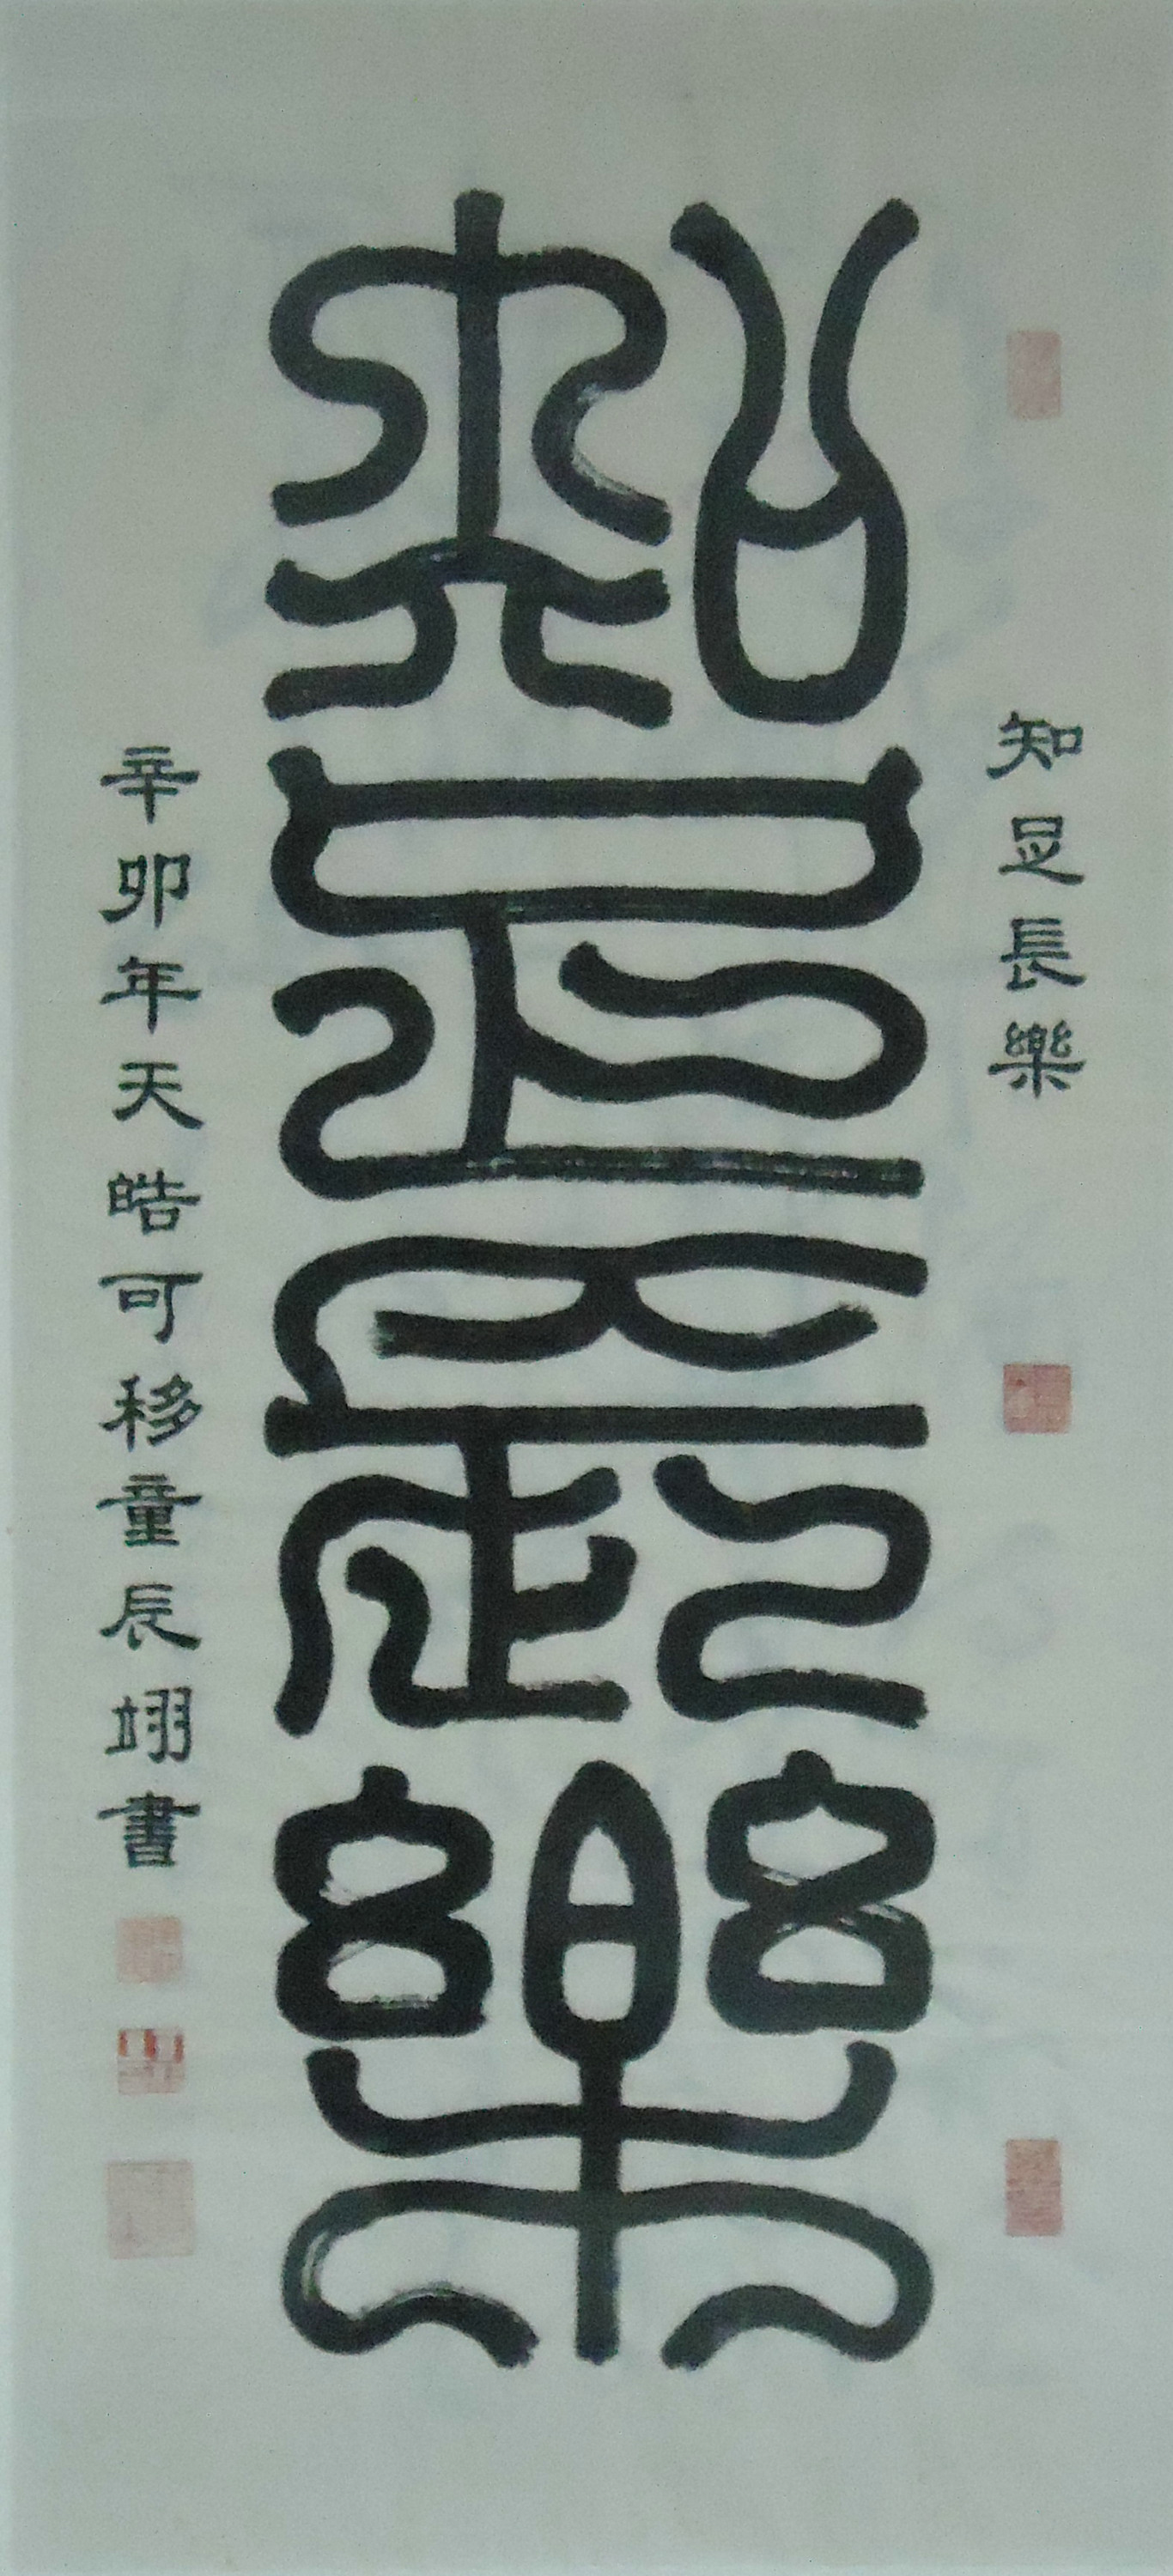 知足長樂
知足長樂
辛卯年天皓可移童辰翊書